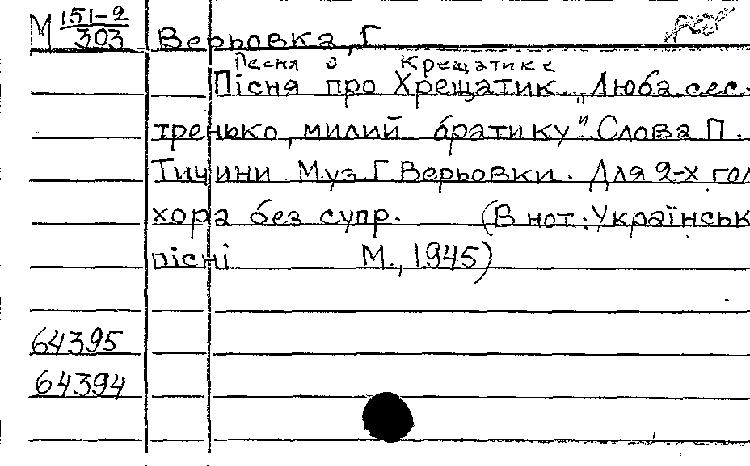 М 151-2/303 Верьовка, Г
Песня о Крещатике
Пісня про Хрещатик. „Люба сес-
тренько, милий братику" Слова П.
Тичини Муз Г Верьовки. Для 2-х гол
хора без супр. (В нот.: Українськ
пісні М., 1945)
64395
64394